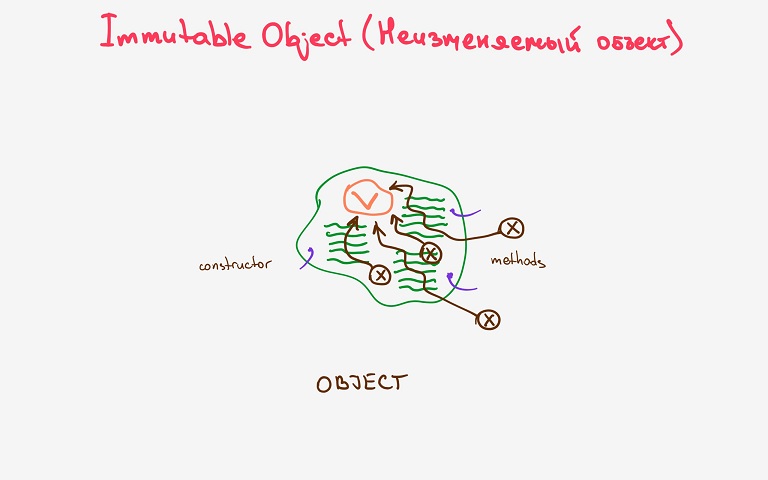 Immutable Object (Неизменяемый объект)
V
X
constructor
X
X
methods
X
OBJECT